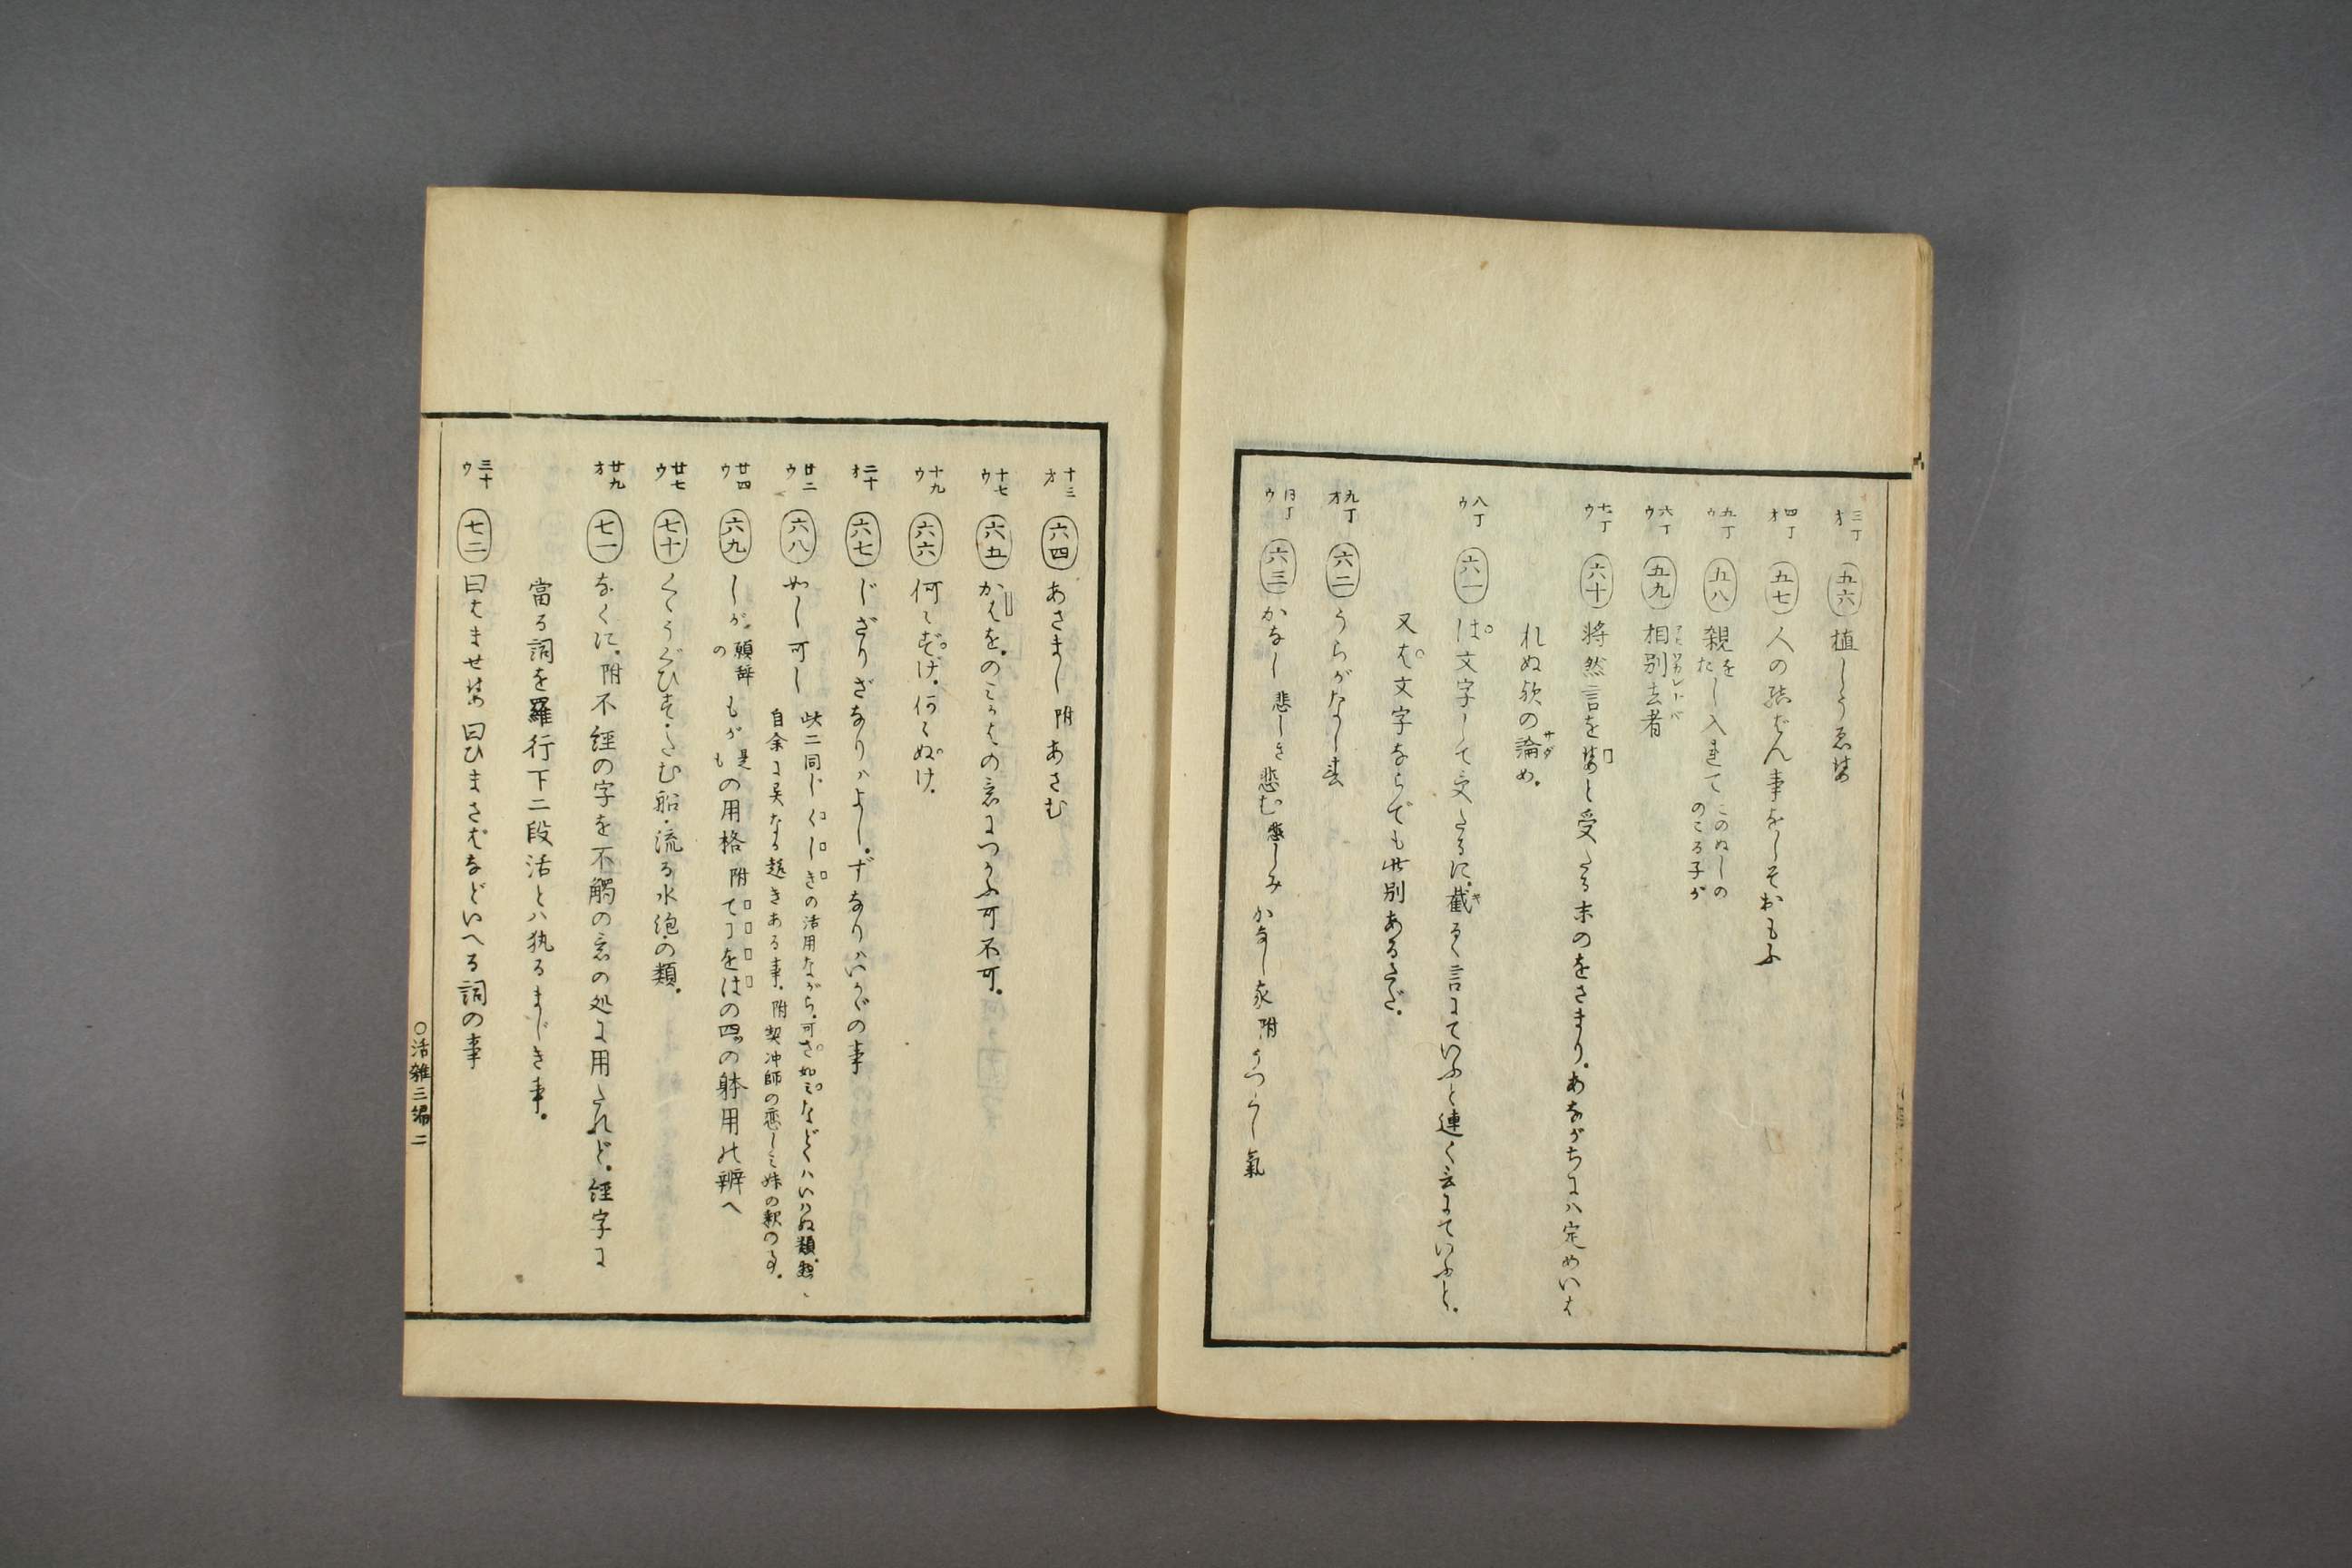 三丁オ 五六 植しうゑば
四丁オ 五七 人の結ばん事をしそおもふ
五丁ウ 五八 親をたし入れて このぬしののこる子か
六丁ウ 五九 相別去者
七丁ウ 六十 将然言をばと受たる末のをさまり。あながちには定めいは
れぬ欤の論め。
八丁ウ 六一 は文字して受たるに。截るゝ言にていふと連く言にていふと。
又ば文字ならでも此別あるさだ。
九丁オ 六二 うらがなし
同丁ウ 六三 かなし 悲しき 悲む 悲しみ かなし 附
十三オ 六四 あさまし 附 あさむ
十七ウ 六五 かはを。のみの意につかふ可不可。
十九ウ 六六 何ぞげ。何ぬけ。
二十オ 六七 じざりざなりハよし。ずなりハいかゞの事
廿二ウ 六八 如し 可し 此二同じくしきの活用ながら。可さ如みなどゝハいはぬ類
自余に異なる趣きある事。附 契冲師の恋しみ妹の釈の事。
廿四ウ 六九 しが。願辞の もがも 是の用格 附 てにをはの四の躰用の辨へ
廿七ウ 七十 くゝうぐひす・さむ船・流る水絶の類。
廿九オ 七一 なくに。附 不経の字を不觸の意の処に用たれど。経字に
當る詞を羅行下二段活とハ執るまじき事。
三十ウ 七二 曰はませば 曰ひまさばなどいへる詞の事
〇活雑三編 二